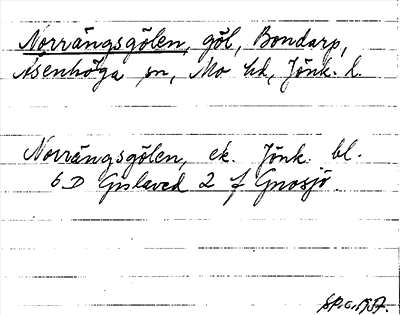 Norrängsgölen, göl, Bondarp,
Åsenhöga sn, Mo hd, Jönk. l.
Norrängsgölen, ek. Jönk. bl.
6 D Gislaved 2 f Gnosjö